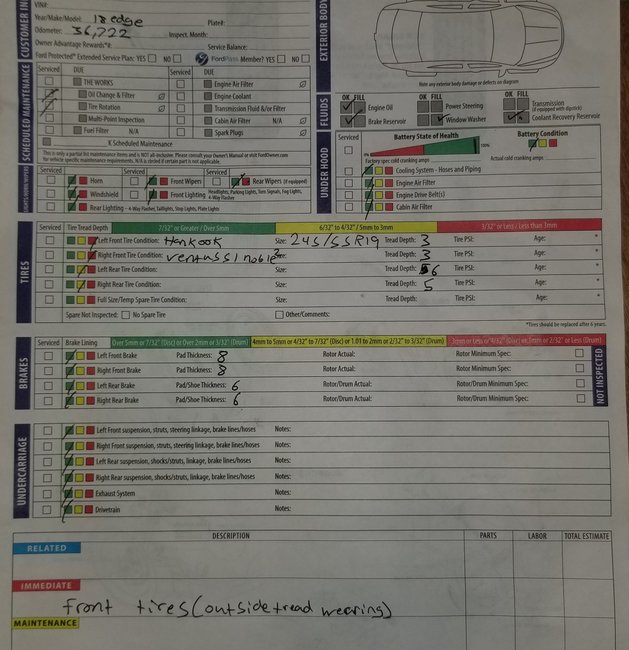 VIN#:
Year/Make/Model: 18 edge Plate#:
Odometer: 36,722 Inspect. Month:
Owner Advantage Rewards#: Service Balance:
Ford Protect® Extended Service Plan: YES NO FordPass Member? YES NO
CUSTOMER IN
EXTERIOR BODY
Note any exterior body damage or defects on diagram
SCHEDULED MAINTENANCE
Serviced DUE Serviced DUE
THE WORKS Engine Air Filter
Oil Change & Filter Engine Coolant
Tire Rotation Transmission Fluid &/or Filter
Multi-Point Inspection Cabin Air Filter N/A
Fuel Filter N/A Spark Plugs
K Scheduled Maintenance
This is only a partial list maintenance items and is NOT all-inclusive. Please consult your Owner's Manual or visit FordOwner.com
for vehicle specific maintenance requirements. N/A is circled if certain part is not applicable.
FLUIDS
OK FILL OK FILL OK FILL
Engine Oil Power Steering Transmission
(if equipped with dipstick)
Brake Reservoir Window Washer Coolant Recovery Reservoir
UNDER HOOD
Serviced Battery State of Health Battery Condition
0% 100%
Factory spec cold cranking amps Actual cold cranking amps
Cooling System - Hoses and Piping
Engine Air Filter
Engine Drive Belt(s)
Cabin Air Filter
LIGHTS/HORN/WIPERS
Serviced Serviced Serviced
Horn Front Wipers Rear Wipers (if equipped)
Windshield Front Lighting Headlights, Parking Lights, Turn Signals, Fog Lights,
4-Way Flasher
Rear Lighting - 4-Way Flasher, Taillights, Stop Lights, Plate Lights
TIRES
Serviced Tire Tread Depth 7/32" or Greater / Over 5mm 6/32" to 4/32" / 5mm to 3mm 3/32" or Less / Less than 3mm
Left Front Tire Condition: Hankook Size: 245/55R19 Tread Depth: 3 Tire PSI: Age: *
Right Front Tire Condition: Size: Tread Depth: 3 Tire PSI: Age: *
Left Rear Tire Condition: Size: Tread Depth: 6 Tire PSI: Age: *
Right Rear Tire Condition: Size: Tread Depth: 5 Tire PSI: Age: *
Full Size/Temp Spare Tire Condition: Size: Tread Depth: Tire PSI: Age: *
Spare Not Inspected: No Spare Tire Other/Comments:
*Tires should be replaced after 6 years.
BRAKES
Serviced Brake Lining Over 5mm or 7/32" (Disc) or Over 2mm or 3/32" (Drum) 4mm to 5mm or 4/32" to 7/32" (Disc) or 1.01 to 2mm or 2/32" to 3/32" (Drum) 3mm or Less or 4/32" (Disc) or 2/32" or Less (Drum)
Left Front Brake Pad Thickness: 8 Rotor Actual: Rotor Minimum Spec:
Right Front Brake Pad Thickness: 8 Rotor Actual: Rotor Minimum Spec:
Left Rear Brake Pad/Shoe Thickness: 6 Rotor/Drum Actual: Rotor/Drum Minimum Spec:
Right Rear Brake Pad/Shoe Thickness: 6 Rotor/Drum Actual: Rotor/Drum Minimum Spec:
NOT INSPECTED
UNDERCARRIAGE
Serviced
Left Front suspension, struts, steering linkage, brake lines/hoses Notes:
Right Front suspension, struts, steering linkage, brake lines/hoses Notes:
Left Rear suspension, shocks/struts, linkage, brake lines/hoses Notes:
Right Rear suspension, shocks/struts, linkage, brake lines/hoses Notes:
Exhaust System Notes:
Drivetrain Notes:
DESCRIPTION PARTS LABOR TOTAL ESTIMATE
RELATED
IMMEDIATE
front tires(outside tread wearing)
MAINTENANCE